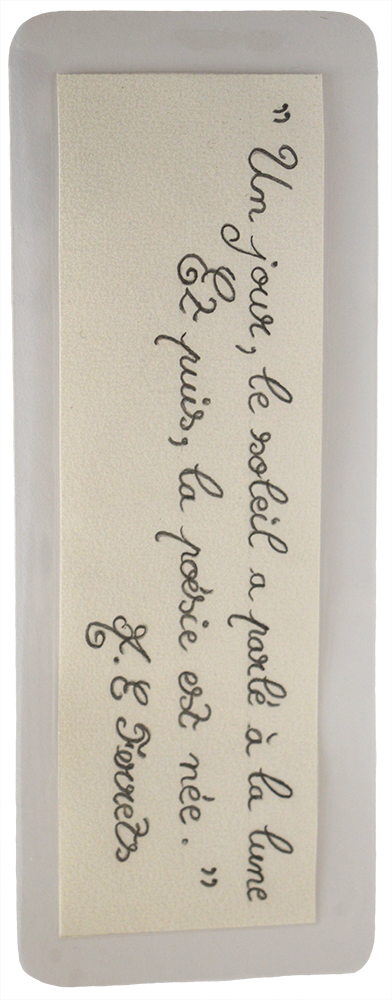 " Un jour, le soleil a parlé à la lune
Et puis, la poésie est née. "